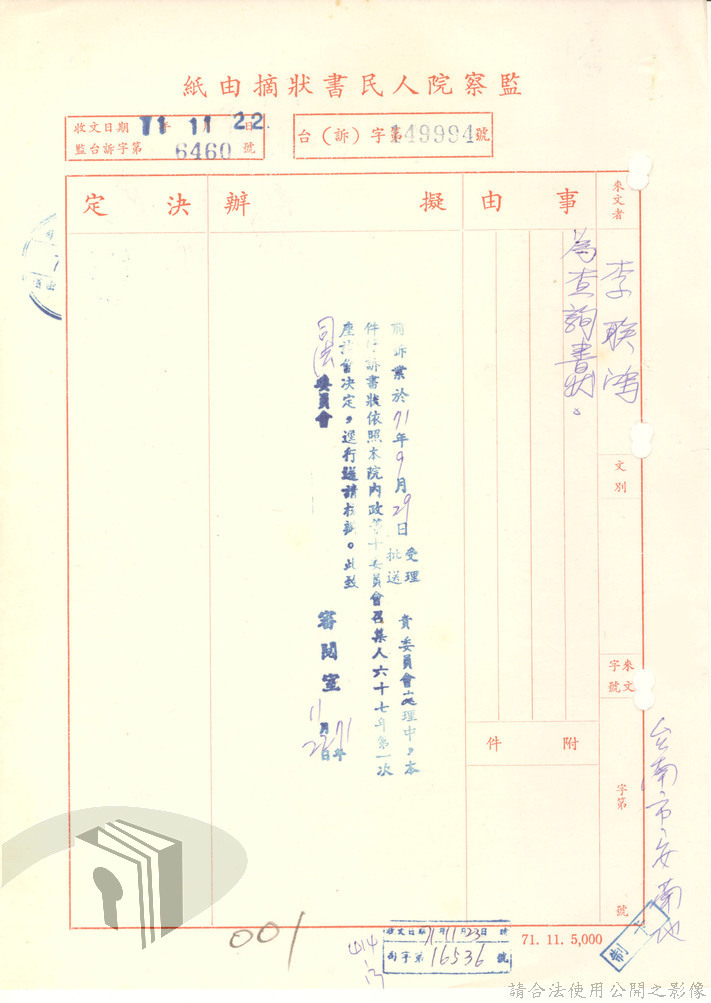 監察院人民書狀摘由紙
收文日期 71年 11月 22日
監台訴字第 6460 號
台（訴）字第149994號
來文者
李聯鴻
文別
來文字號
字第 號
事由
為查詢書狀。
附件
擬辦
前訴業於71年9月29日受理批送 貴委員會處理中，本
件續訴書狀依照本院內政等十委員會召集人六十七年第一次
座談會決定，逕行送請核辦。此致
司法委員會
審閱室
71年11月22日
決定
台南市安南地
制
收文日期71年11月23日 時
司字第16536號
71. 11. 5,000
001
請合法使用公開之影像